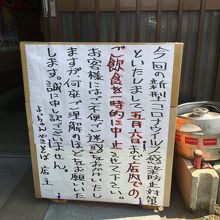 今回の新型コロナウイルス感染防止対策
といたしまして五月六日まで店内での
ご飲食を一時的に中止させて下さい。
お客様にはご不便ご迷惑をおかけいたし
ますが何卒ご理解のほどをお願いいた
します。誠に申し訳ございません。
ちゃんやきそば 店主